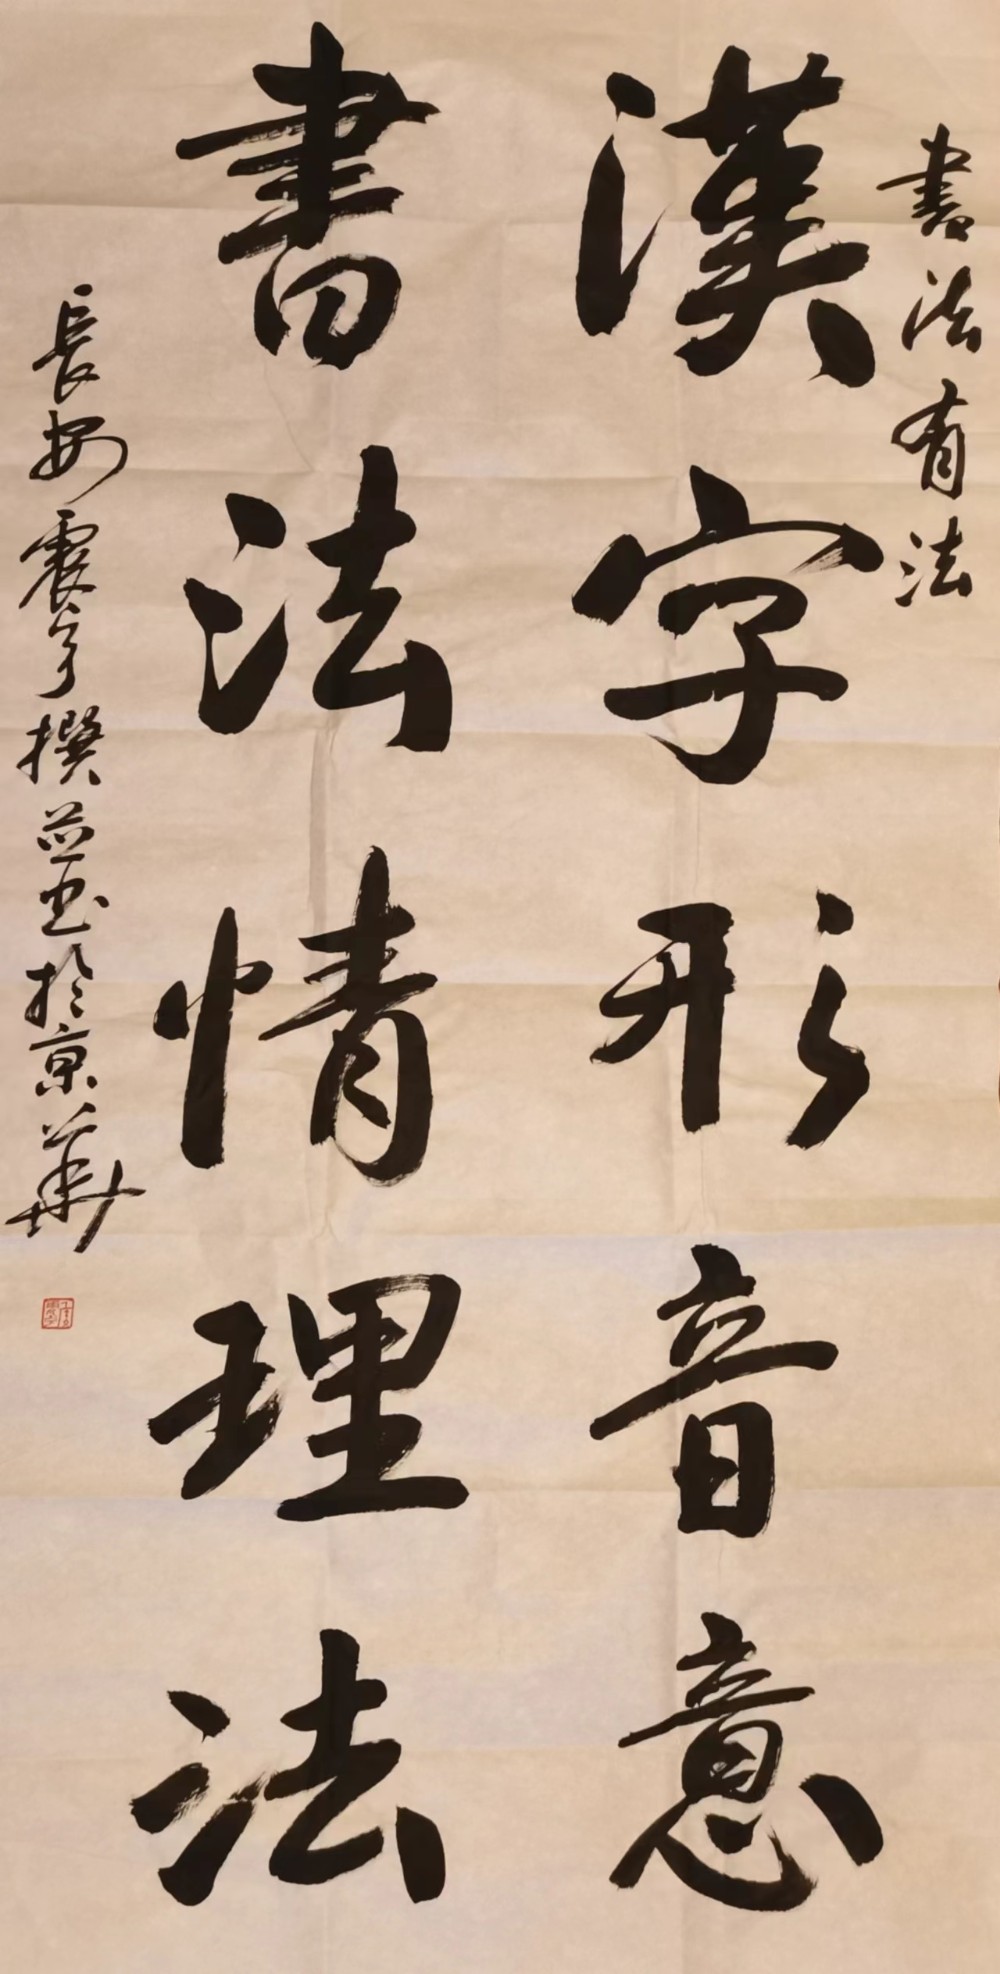 書法有法
漢字形音意
書法情理法
長安震宇撰並书於京華